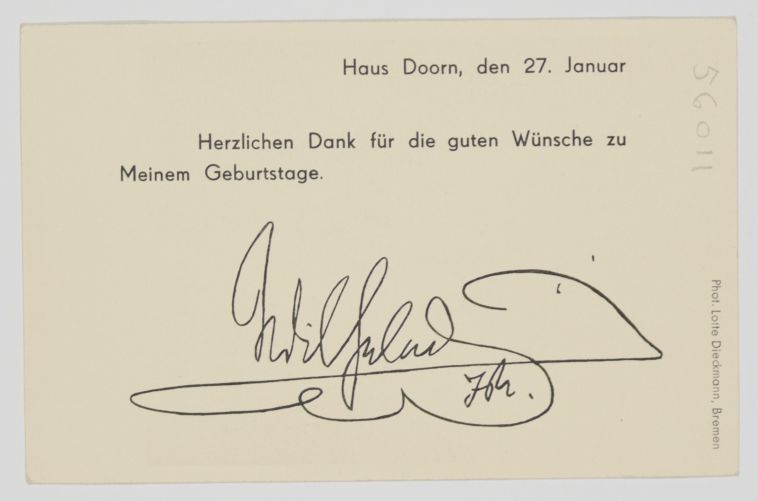 Haus Doorn, den 27. Januar
Herzlichen Dank für die guten Wünsche zu
Meinem Geburtstage.
Wilhelm
I.R.
Phot. Lotte Dieckmann, Bremen
56011